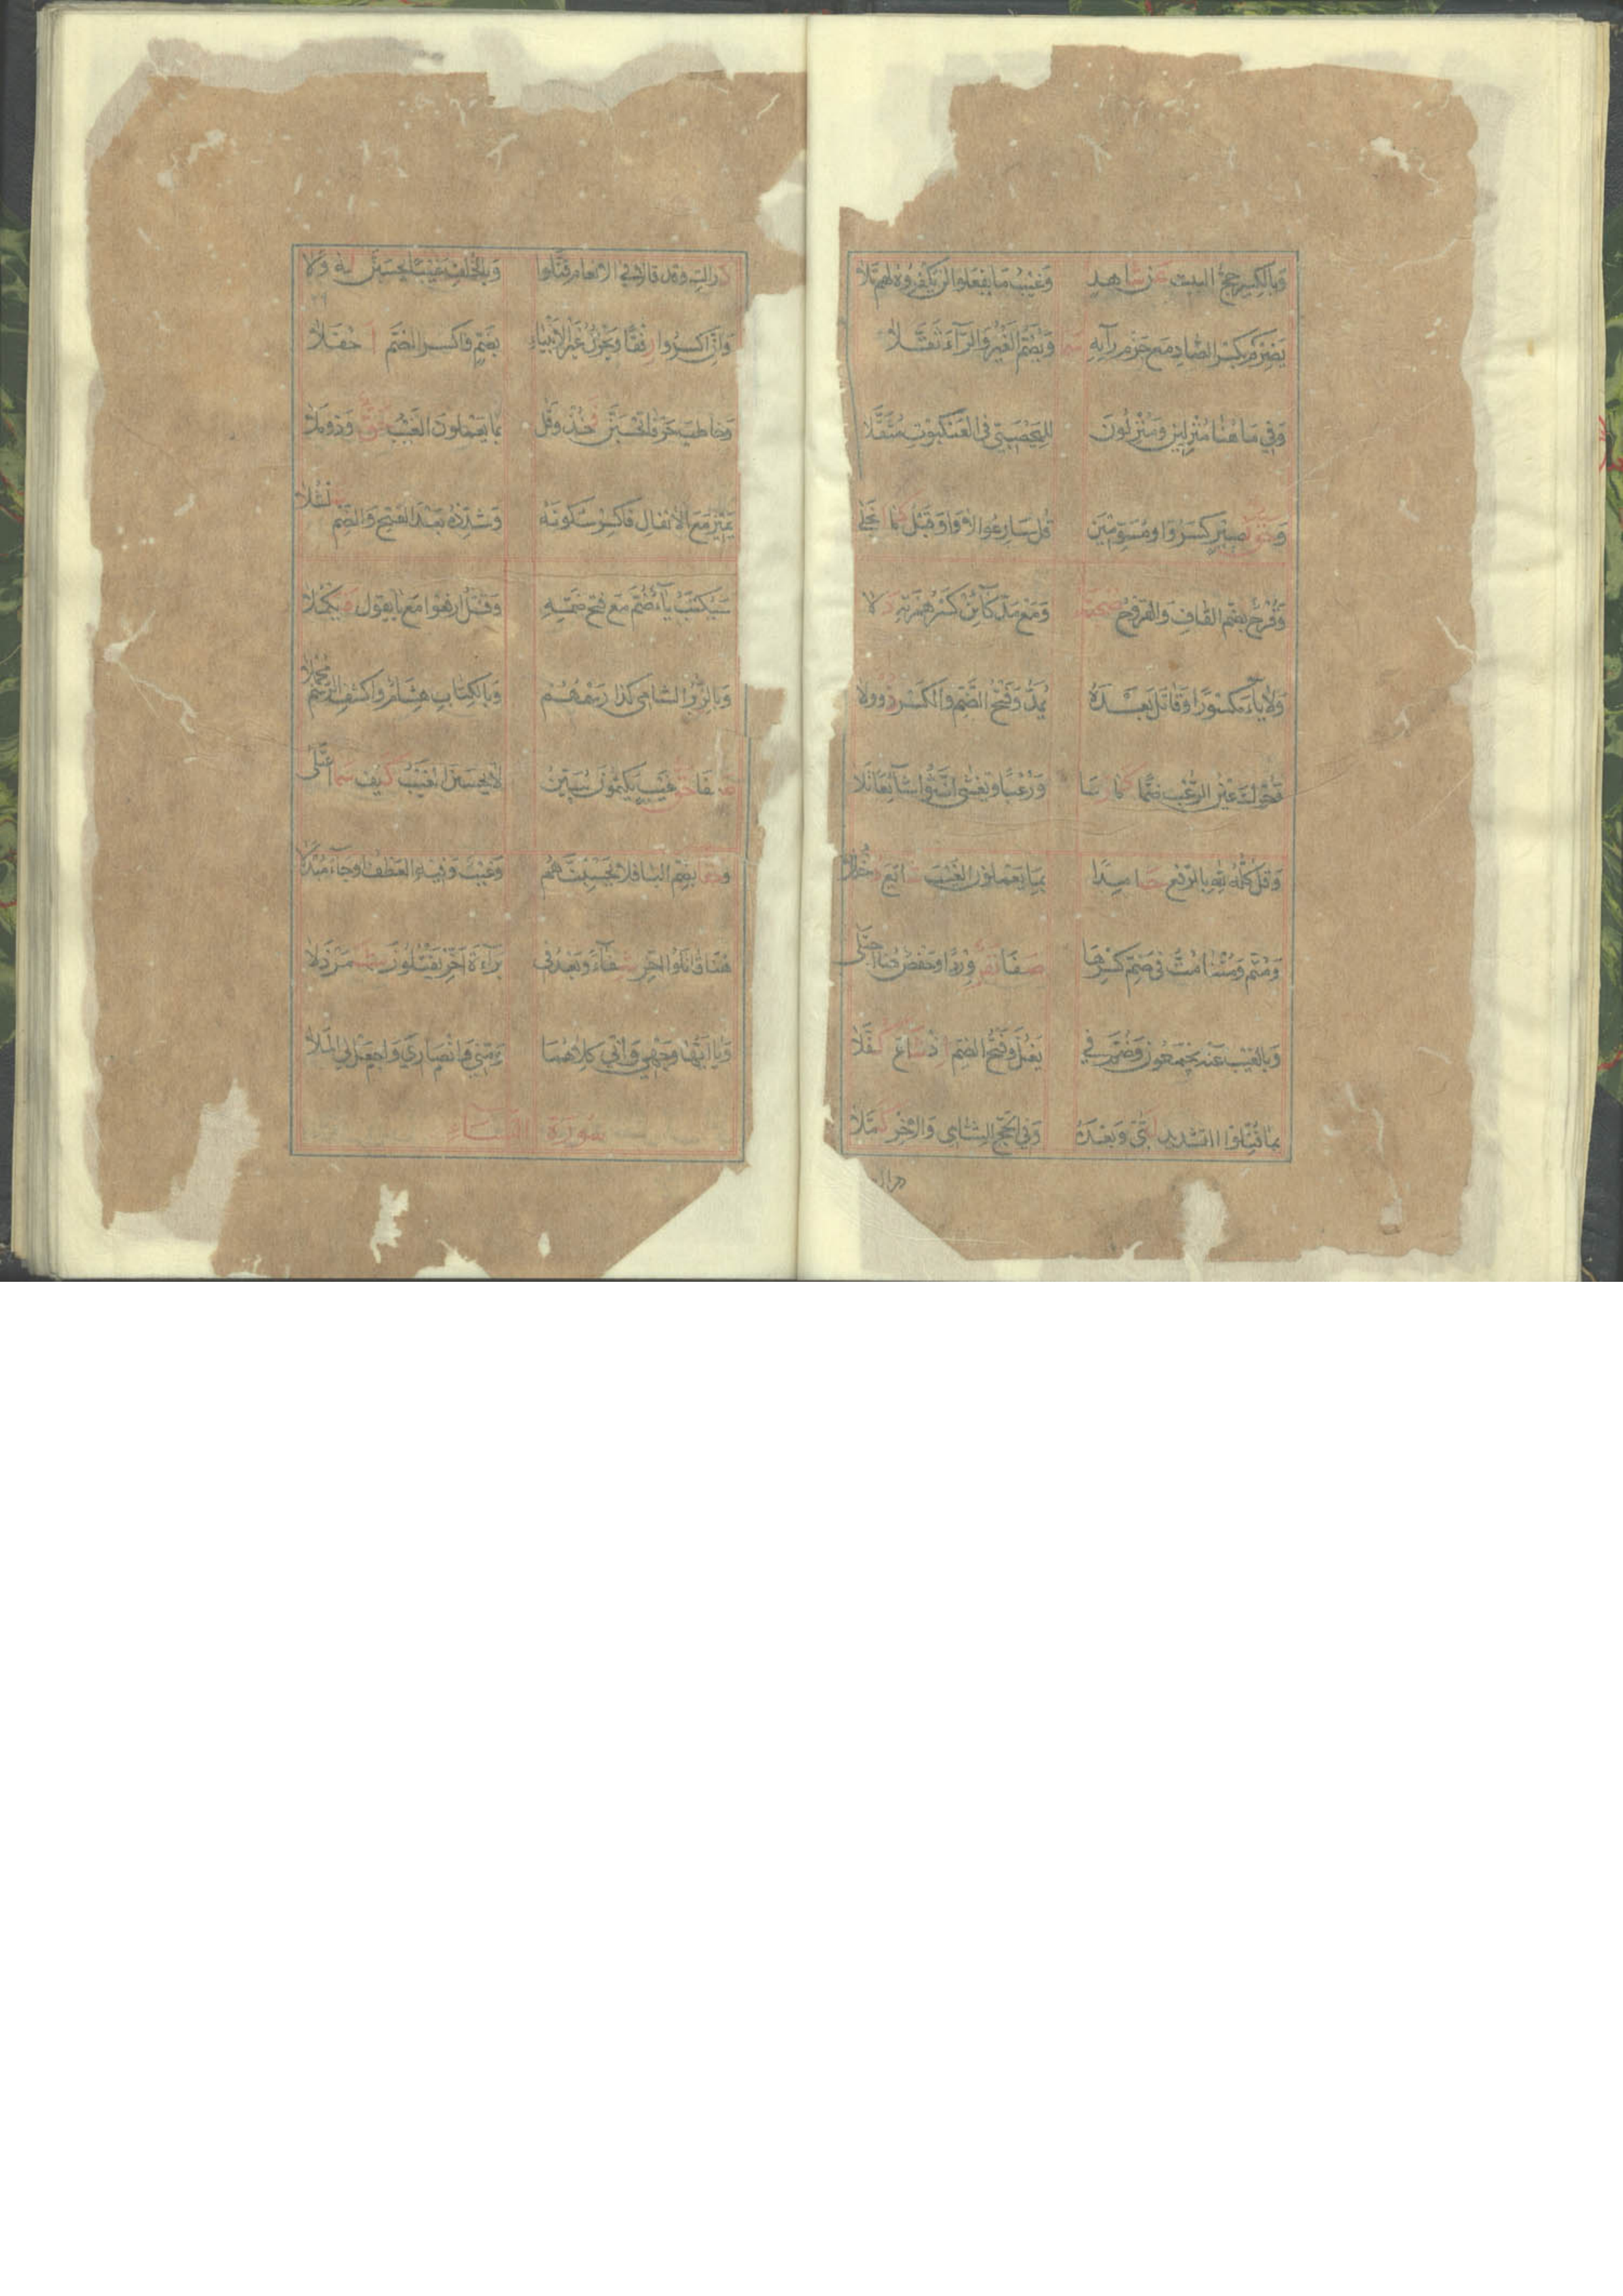 وَبِالكَسِرِ حَجُّ البيت عَن شَاهِدٍ وَغَيبُ مَا يَفعَلوا لَن يُكفَرُوهُ لهُم تَلَا
يَضِرْكُم بكسر الضاد مع جزم رآيه سما وَيضُمُّ الغَيرُ وَالرَّآءَ ثَقَّلَا
وَفِي مَا هُنَا مُنزِلِينَ وَمُنزِلُونَ لليَحصَبي في العَنكَبُوت مُثَقَّلَا
وَحَقُّ نَصِيرٍ كَسرُ وَاو مُسَوِّمِينَ قُل سَارِعُوا لا وَاوَ قَبلُ كَمَا انجَلَى
وَقُرحٌ بِضَمِّ القَافِ وَالقَرحُ صُحبَةٌ وَمَع مَدِّ كَآئِن كَسرُ هَمزَتِهِ دَلَا
وَلَا يَاءَ مَكسُورًا وَقَاتَلَ بَعدَهُ يُمَدُّ وَفَتحُ الضَّمِّ وَالكَسرُ ذُو وِلَا
وَحُرِّكَ عَينُ الرُّعبِ ضَمًّا كَمَا رَسَا وَرُعبًا وَتَغشَى أَنَّثُوا شَآئِعًا تَلَا
وَقُل كُلُّهُ لِلّهِ بِالرَّفعِ حَامِدًا بِمَا يَعمَلُونَ الغَيبَ شَايَعَ دُخلُلَا
وَمُتُّم وَمُتنَا مُتَّ فِي ضَمِّ كَسرِهَا صَفَا نَفَرٌ وِردًا وَحَفصٌ هُنَا اجتَلَى
وَبِالغَيبِ عَنهُ يَجمَعُونَ وَضُمَّ فِي يَغُلَّ وَفَتحُ الضَّمِّ إِذ شَاعَ كُفِّلَا
بِمَا قُتِلُوا التَّشدِيدُ لَبَّى وَبَعدَهُ وَفِي الحَجِّ لِلشَّامِي وَالاخِرُ كَمَّلَا
دراك
دَرَاكِ وَقَد قَالَا فِي الأنعَامِ قَتَّلُوا وَبِالخُلفِ غَيبًا يَحسَبَنَّ لَهُ وَلَا
وَأَنَّ اكسِرُوا رِفقًا وَيَحزُنُ غَيرَ الأنبِيَاءِ بِضَمٍّ وَاكسِرِ الضَّمَّ أَحفَلَا
وَخَاطَبَ حَرفَا يَحسَبَنَّ فَخُذ وَقُل بِمَا يَعمَلُونَ الغَيبُ حَقٌّ وَذُو مَلَا
يَمِيزَ مَعَ الأنفَالِ فَاكسِر سُكُونَهُ وَشَدِّدهُ بَعدَ الفَتحِ وَالضَّمِّ شُلشُلَا
سَيُكتَبُ يَآءٌ ضُمَّ مَع فَتحِ ضَمِّهِ وَقَتلَ ارفَعُوا مَع يَا يَقُولُ فَيَكمُلَا
وَبِالزُّبُرِ الشَّامِي كَذَا رَسمُهُم وَبِالكِتَابِ هِشَامٌ وَاكشِفِ الرَّسمَ مُجمِلَا
صَفَا حَقُّ غَيبٍ يَكتُمُونَ يُبَيِّنُنَّ لَا يَحسَبَنَّ الغَيبُ كَيفَ سَمَا اعتَلَى
وَحَقًّا بِضَمِّ البَا فَلَا يَحسِبُنَّهُم وَغَيبٌ وَفِيهِ العَطفُ أَو جَآءَ مُبدَلَا
هُنَا قَاتَلُوا أَخِّر شِفَآءً وَبَعدُ فِي بَرَآءَةَ أَخِّر يَقتُلُونَ شَمَردَلَا
وَيَاآتُهَا وَجهِي وَإِنِّي كِلَاهُمَا وَمِنِّي وَأَنصَارِيَ وَاجعَل لِي المَلَا
سُورَةُ النِّسَاءِ